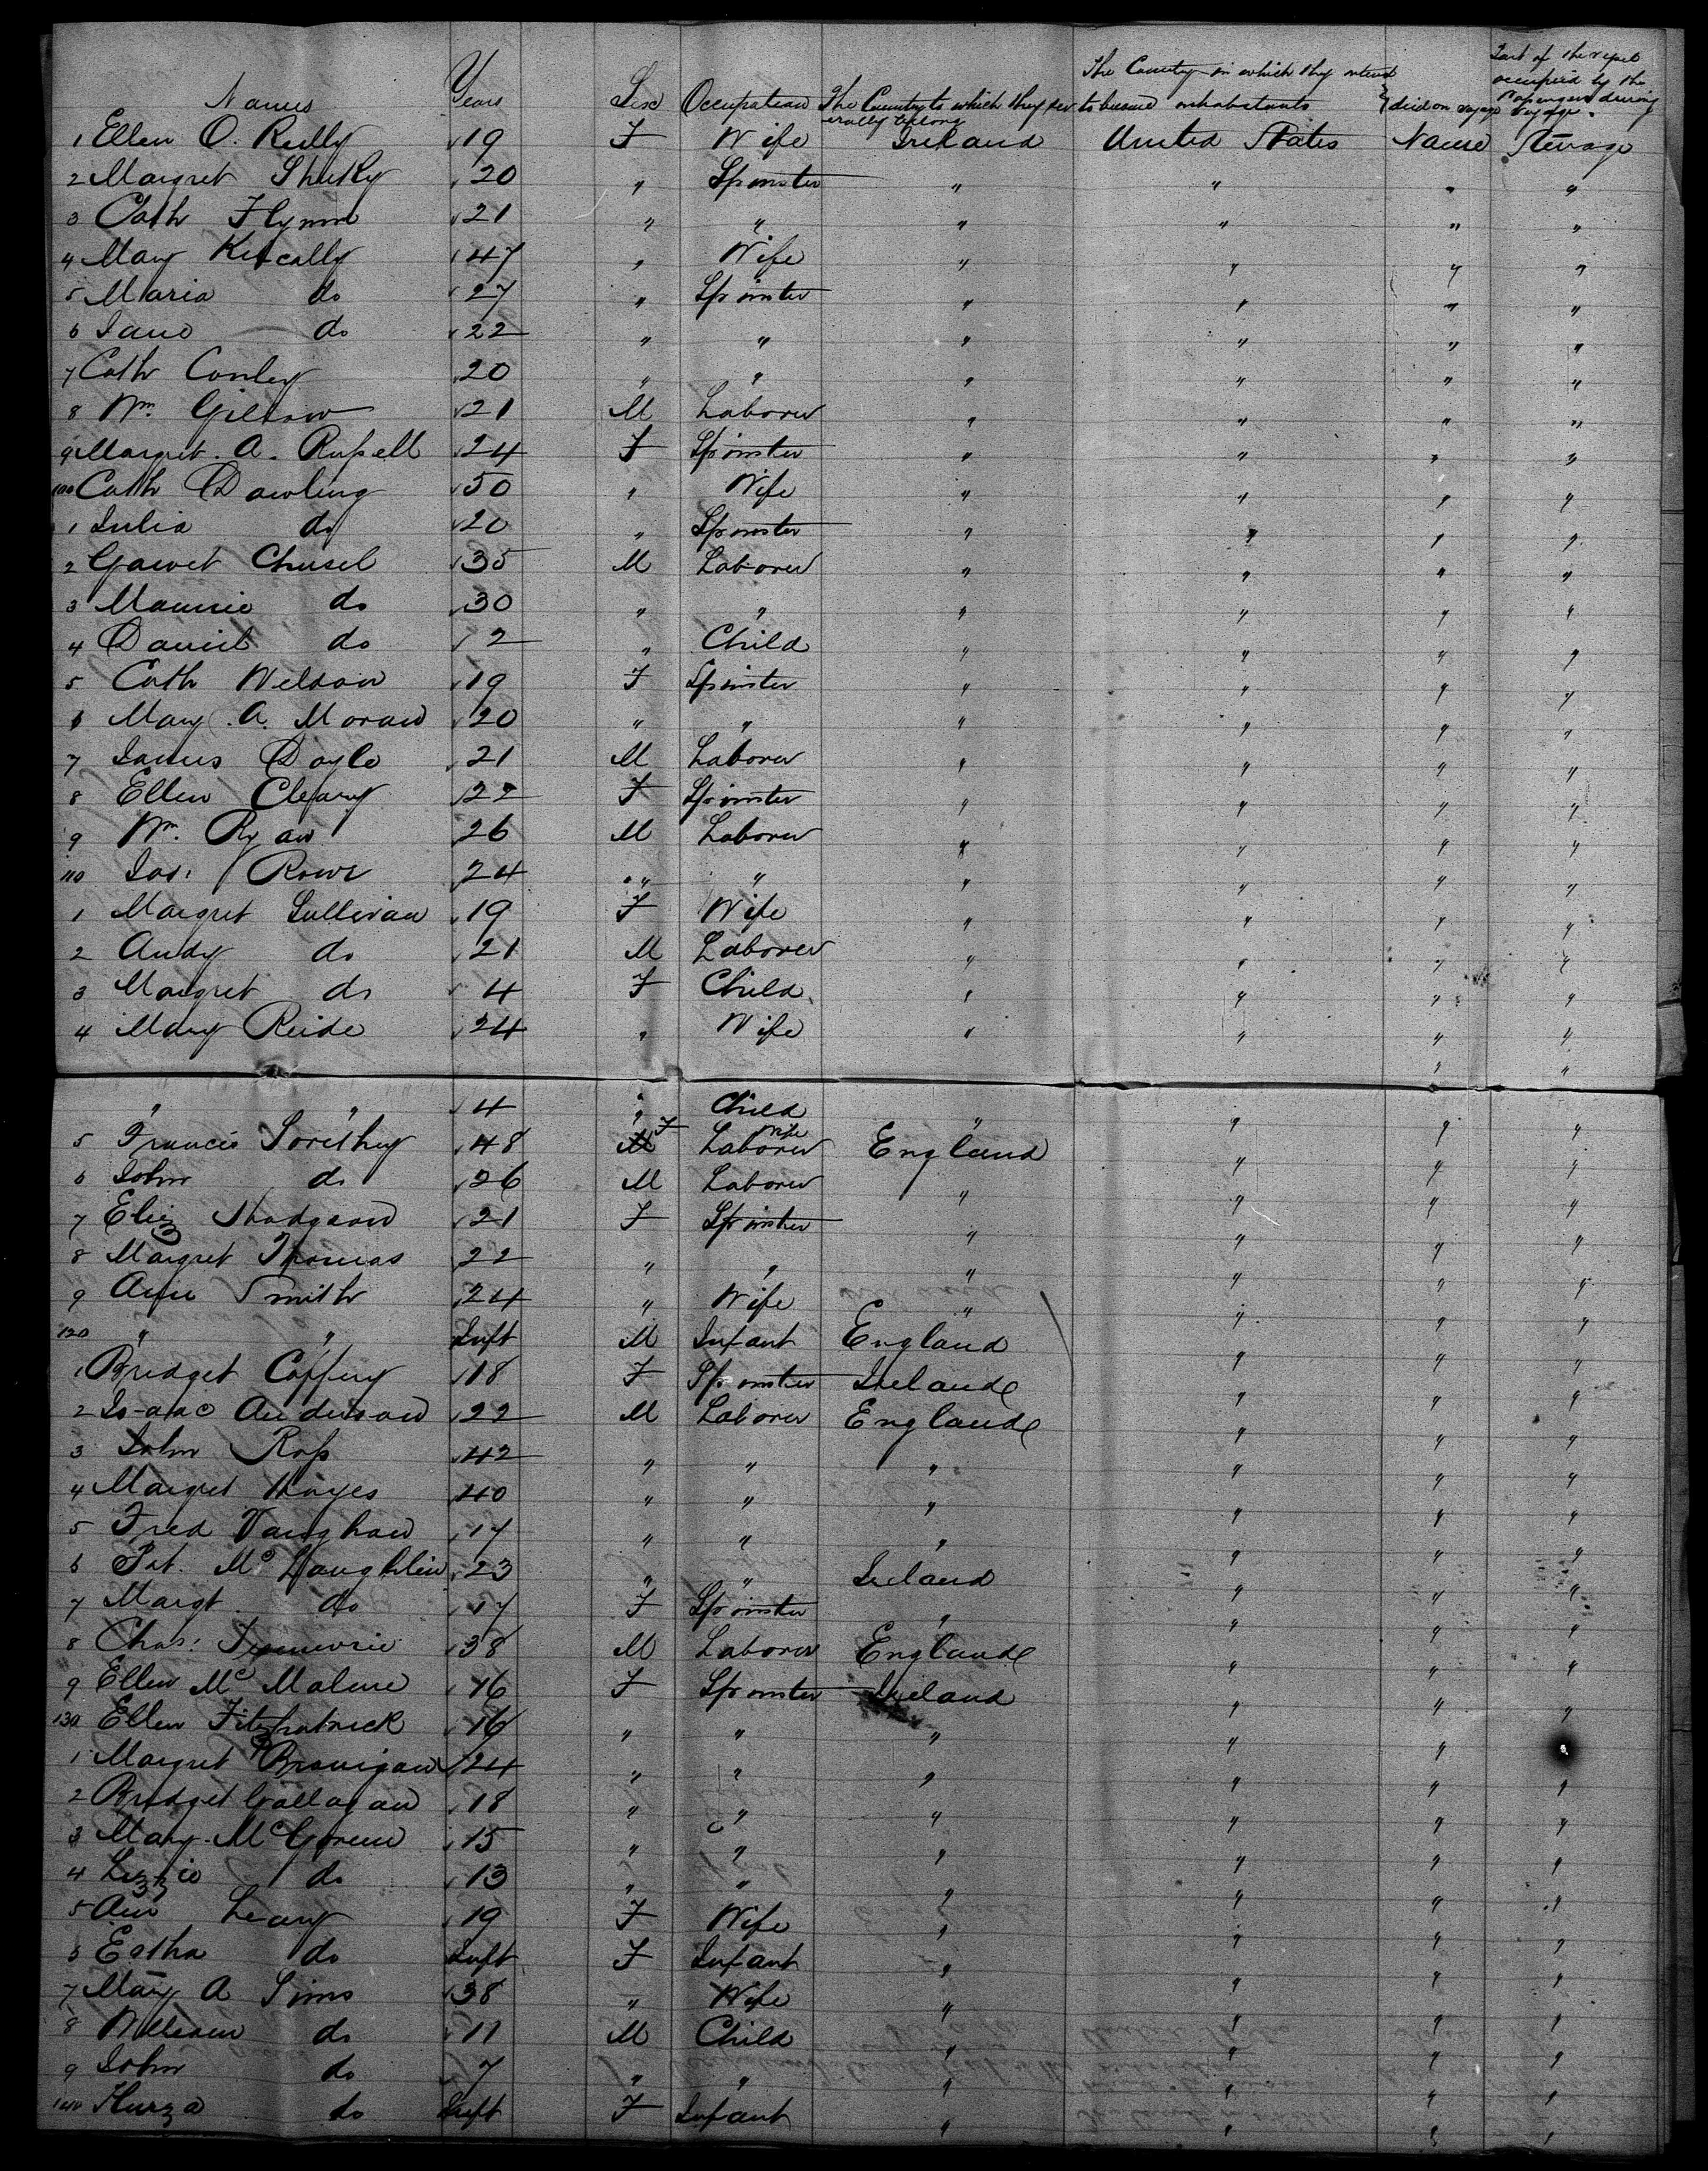 Names Years Sex Occupation The Country to which they severally belong The Country in which they intend to become inhabitants died on voyage Part of the vessel occupied by the Passengers during Voyage.
1 Ellen O. Reilly 19 F Wife Ireland United States None Steerage
2 Margret 20 " Spinster " " " "
3 Cath Flynn 21 " " " " " "
4 Mary 47 " Wife " " " "
5 Maria do 27 " Spinster " " " "
6 Jane do 22 " " " " " "
7 Cath Conley 20 " " " " " "
8 Wm. 21 M Laborer " " " "
9 Margret. A. Russell 24 F Spinster " " " "
100 Cath Dowling 50 " Wife " " " "
1 Julia do 20 " Spinster " " " "
2 35 M Laborer " " " "
3 do 30 " " " " " "
4 Daniel do 2 " Child " " " "
5 Cath Weldon 19 F Spinster " " " "
6 Mary. A. Moran 20 " " " " " "
7 James Doyle 21 M Laborer " " " "
8 Ellen Cleary 22 F Spinster " " " "
9 Wm. Ryan 26 M Laborer " " " "
110 Rowe 24 " " " " " "
1 Margret Sullivan 19 F Wife " " " "
2 Andy do 21 M Laborer " " " "
3 Margret do 4 F Child " " " "
4 Mary Reide 24 " Wife " " " "
" " 4 " Child " " " "
5 Francis 48 F Laborer Wife England " " "
6 John do 26 M Laborer " " " "
7 Eliz 21 F Spinster " " " "
8 Margret Thomas 22 " " " " " "
9 Ann Smith 24 " Wife " " " "
120 " " Inft M Infant England " " "
1 Bridget Coffery 18 F Spinster Ireland " " "
2 Isaac Anderson 22 M Laborer England " " "
3 John Ross 42 " " " " " "
4 Margret Hayes 40 " " " " " "
5 Fred Vaughan 17 " " " " " "
6 Pat. McLaughlin 23 " " Ireland " " "
7 Margt do 17 F Spinster " " " "
8 Chas. 38 M Laborer England " " "
9 Ellen Mc 16 F Spinster Ireland " " "
130 Ellen Fitzpatrick 16 " " " " " "
1 Margret Branigan 24 " " " " " "
2 Bridget Gallagan 18 " " " " " "
3 Mary. 15 " " " " " "
4 Lizzie do 13 " " " " " "
5 Ann Leary 19 F Wife " " " "
6 Estha do Inft F Infant " " " "
7 Mary A Sims 38 " Wife " " " "
8 William do 11 M Child " " " "
9 John do 7 " " " " " "
140 do Inft F Infant " " " "